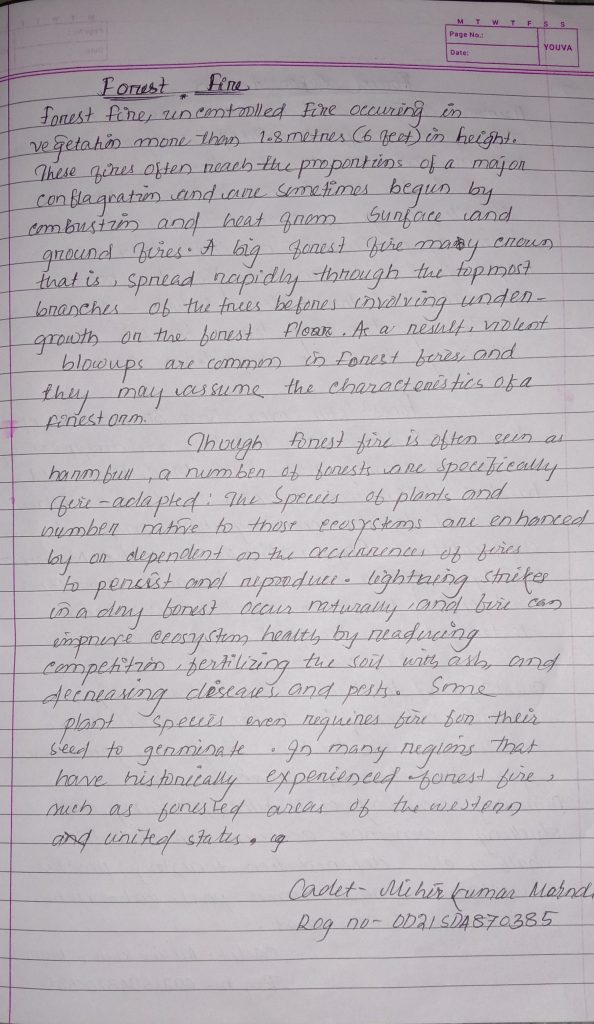 M T W T F S S
Page No.:
Date:
YOUVA
Forest Fire
Forest fire, uncontrolled fire occuring in
vegetation more than 1.8 metres (6 feet) in height.
These fires often reach the proportions of a major
conflagration and are sometimes begun by
combustion and heat from surface and
ground fires. A big forest fire may crown
that is, spread rapidly through the topmost
branches of the trees befores involving under-
growth or the forest floor. As a result, violent
blowups are common in forest fires, and
they may assume the characteristics of a
firestorm.
Though forest fire is often seen as
harmfull, a number of forests are specifically
fire-adapted: The species of plants and
number native to those ecosystems are enhanced
by or dependent on the occurrences of fires
to persist and reproduce. lightning strikes
in a dry forest occur naturally, and fire can
improve ecosystem health by readucing
competition, fertilizing the soil with ash, and
decreasing diseases, and pests. Some
plant species even requires fire for their
seed to germinate. In many regions that
have historically experienced forest fire,
such as forested areas of the western
and united states.
Cadet- Mihir kumar
Rog no- OD21SDA870385